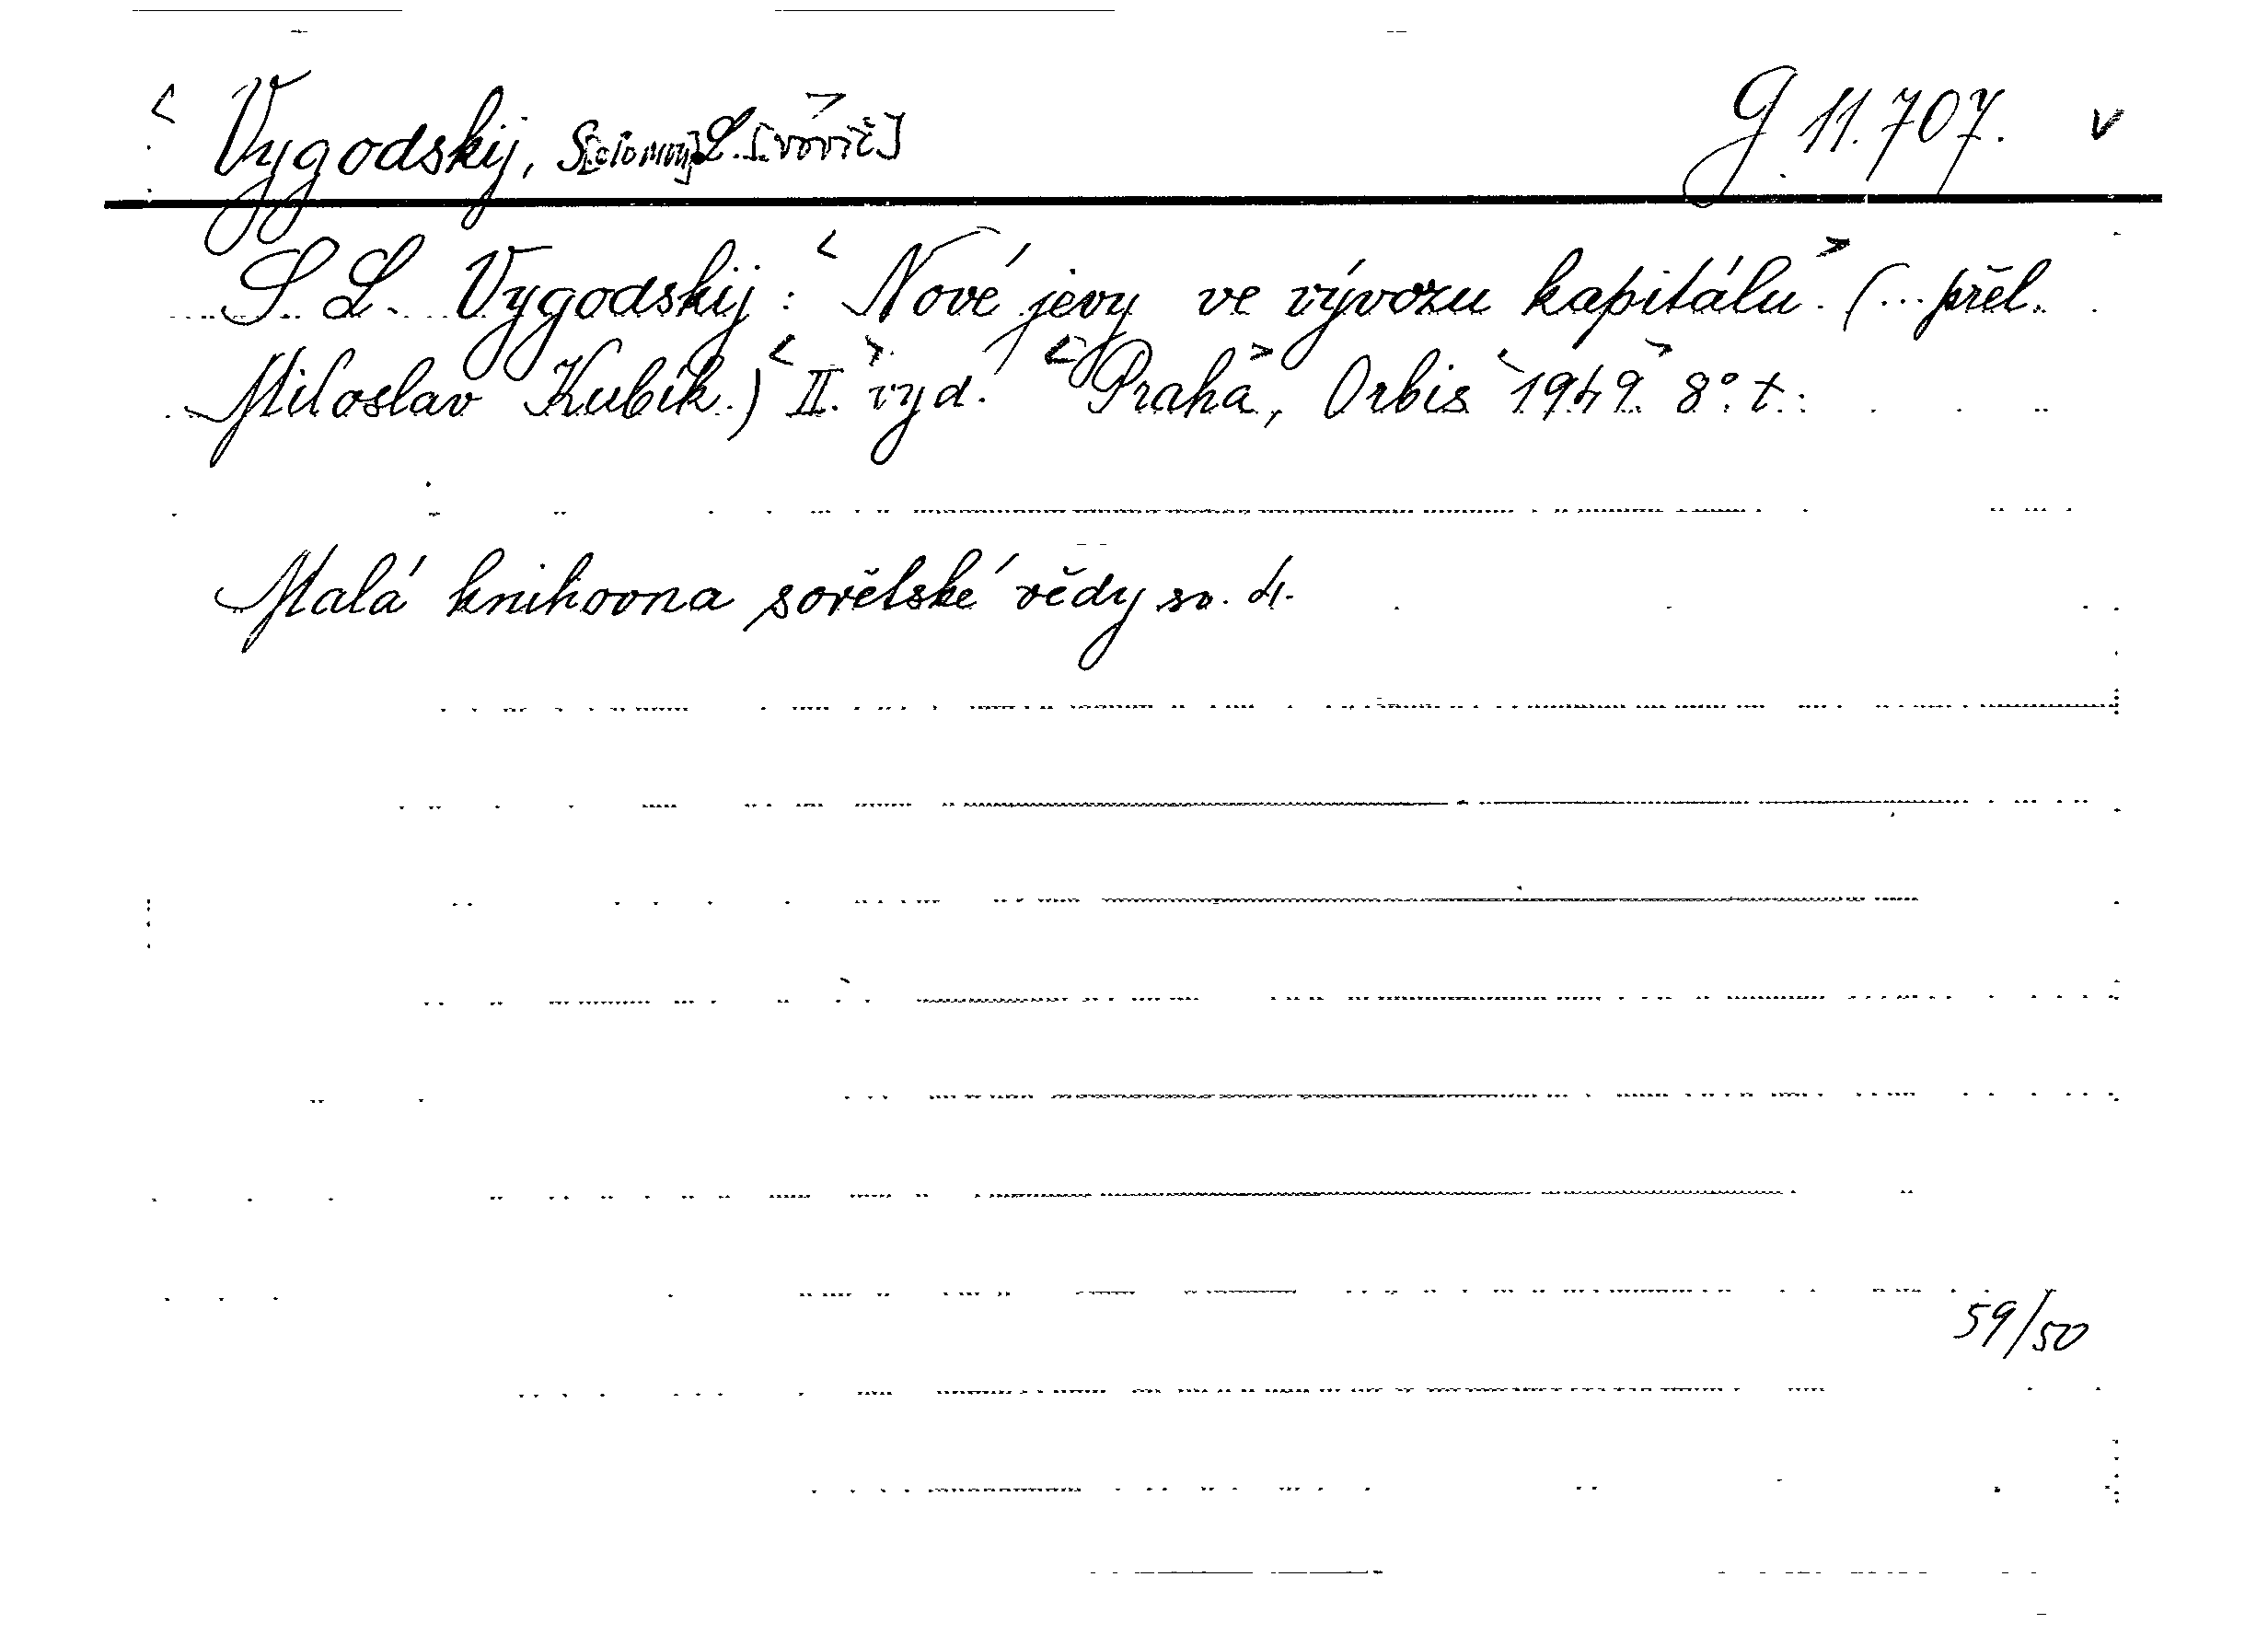 < Vygodskij, S[olomon] L.[vovič] > G 11.707. v
S. L. Vygodskij: <Nové jevy ve vývozu kapitálu.> (... přel.
Miloslav Kubík.) <II. vyd.> <Praha>, Orbis <1949.> 8°. t.
Malá knihovna sovětské vědy sv. 4.
59/50